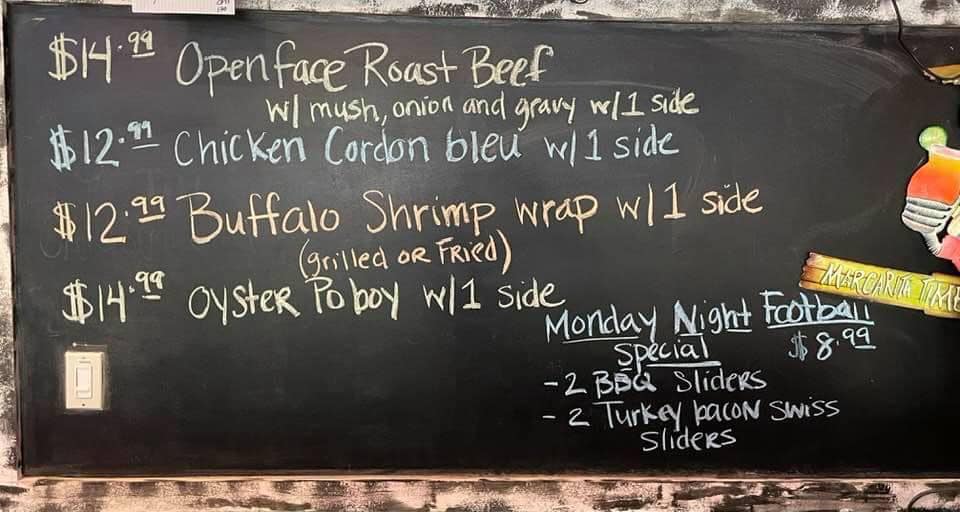 $14.99 Openface Roast Beef
w/ mush, onion and gravy w/1 side
$12.99 Chicken Cordon bleu w/1 side
$12.99 Buffalo Shrimp wrap w/1 side
(grilled OR FRied)
$14.99 OysteR Po boy w/1 side
Monday Night Football
Special $8.99
- 2 BBQ SlideRs
- 2 Turkey bacoN Swiss
SlideRs
MARGARITA TIME